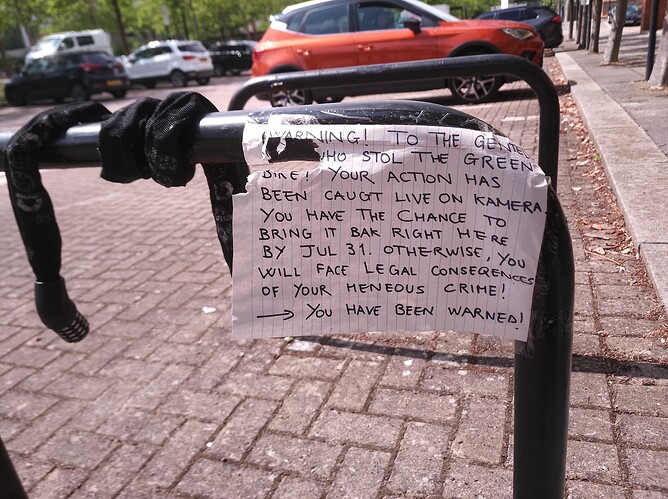 WARNING! TO THE
WHO STOL THE GREEN
BIKE! YOUR ACTION HAS
BEEN CAUGT LIVE ON KAMERA.
YOU HAVE THE CHANCE TO
BRING IT BAK RIGHT HERE
BY JUL 31. OTHERWISE, YOU
WILL FACE LEGAL CONSEQENCES
OF YOUR HENEOUS CRIME!
→ YOU HAVE BEEN WARNED!